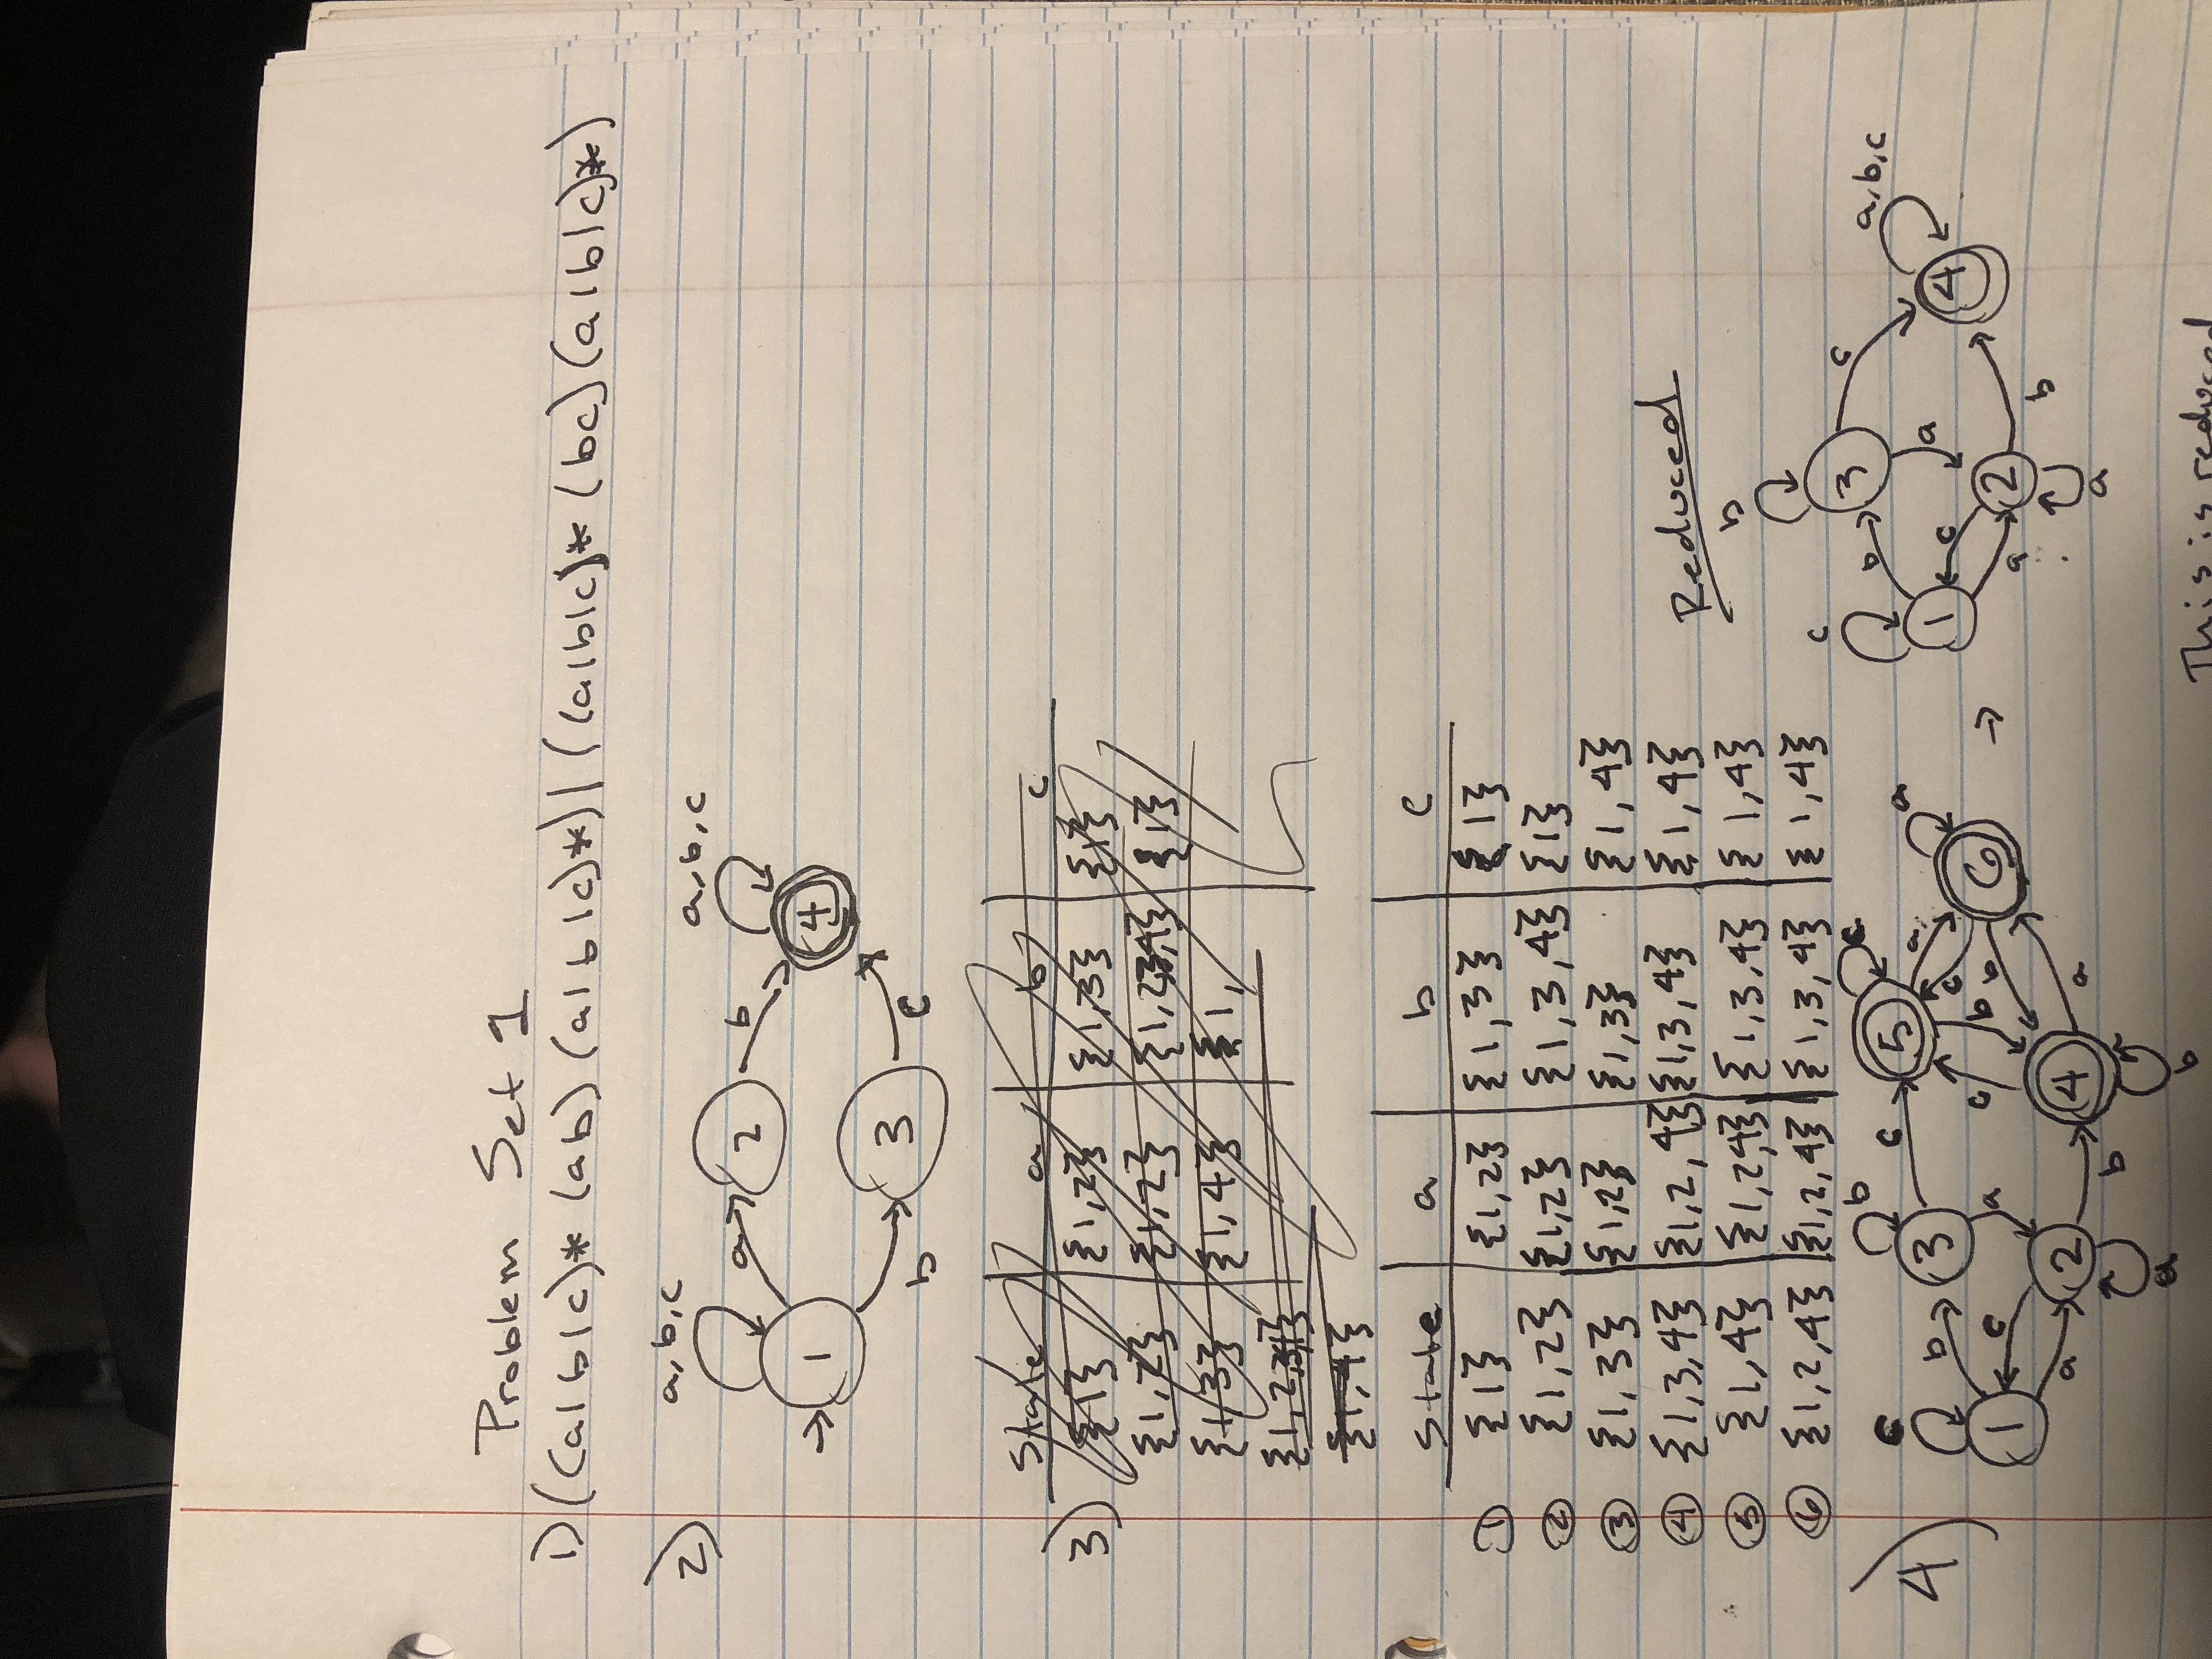 Problem Set 1
1) ((a|b|c)* (ab) (a|b|c)*) | ((a|b|c)* (bc) (a|b|c)*)
2)
a,b,c
a,b,c
a 2 b
1 4
b 3 c
3)
State a b c
{1} {1,2} {1,3} {1}
{1,2} {1,2} {1} 
{1,3} {1,4} {1,
{1,4}
State a b c
① {1} {1,2} {1,3} {1}
② {1,2} {1,2} {1,3,4} {1}
③ {1,3} {1,2} {1,3} {1,4}
④ {1,3,4} {1,2,4} {1,3,4} {1,4}
⑤ {1,4} {1,2,4} {1,3,4} {1,4}
⑥ {1,2,4} {1,2,4} {1,3,4} {1,4}
4)
c b 3 b c 5 c a 6 a
1 c a c b c b
a 2 b 4 a
a b
Reduced
b
c b 3 c a,b,c
1 c a 4
a 2 b
a
This is reduced